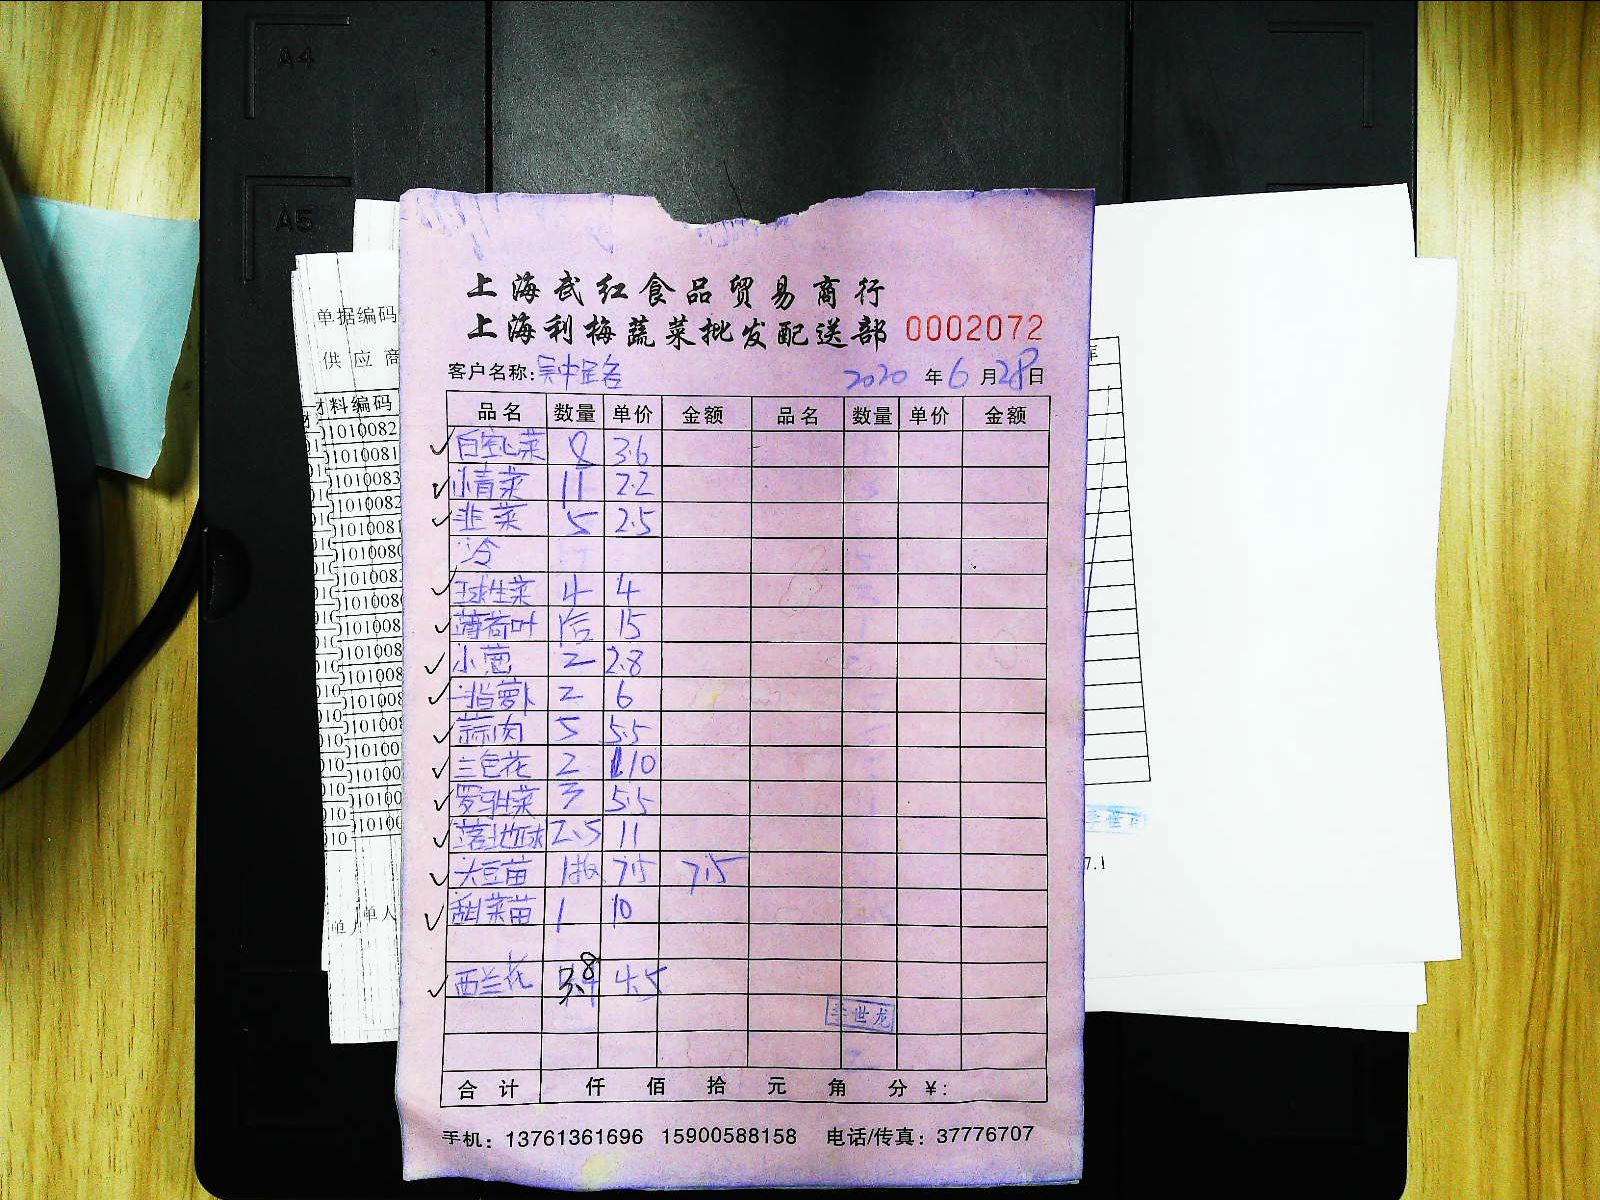 A4
A5
单据编码
供应商
材料编码
1010082
1010081
1010083
1010082
101008
1010080
101008
101008
101008
101008
101008
101008
101008
10100
10100
10100
10100
单人
上海武红食品贸易商行
上海利梅蔬菜批发配送部 0002072
客户名称: 2020 年 6 月 28 日
品名 数量 单价 金额 品名 数量 单价 金额
白空心菜 8 3.6
小青菜 11 2.2
韭菜 5 2.5
冷
球生菜 4 4
薄荷叶 1盒 15
小葱 2 2.8
萝卜 2 6
蒜肉 5 5.5
三色花 2 10
罗马生菜 3 5.5
2.5 11
大豆苗 1 7.5 7.5
甜菜苗 1 10
西兰花 3.8 4.5
李世龙
合计 仟 佰 拾 元 角 分 ¥:
手机: 13761361696 15900588158 电话/传真: 37776707
库
李世龙
7.1